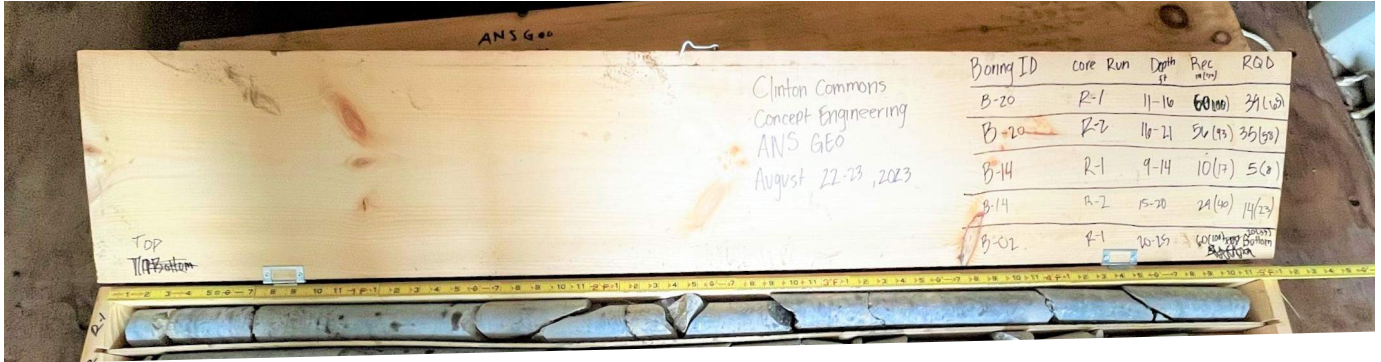 ANS Geo
Clinton Commons
Concept Engineering
ANS GEO
August 22-23, 2023
Boring ID core Run Depth ft Rec in(%) RQD
B-20 R-1 11-16 60(100) 39(65)
B-20 R-2 16-21 56(93) 35(58)
B-14 R-1 9-14 10(17) 5(8)
B-14 R-2 15-20 24(40) 14(23)
B-02 R-1 20-25 60(100)
Bottom
TOP
Bottom
R-1